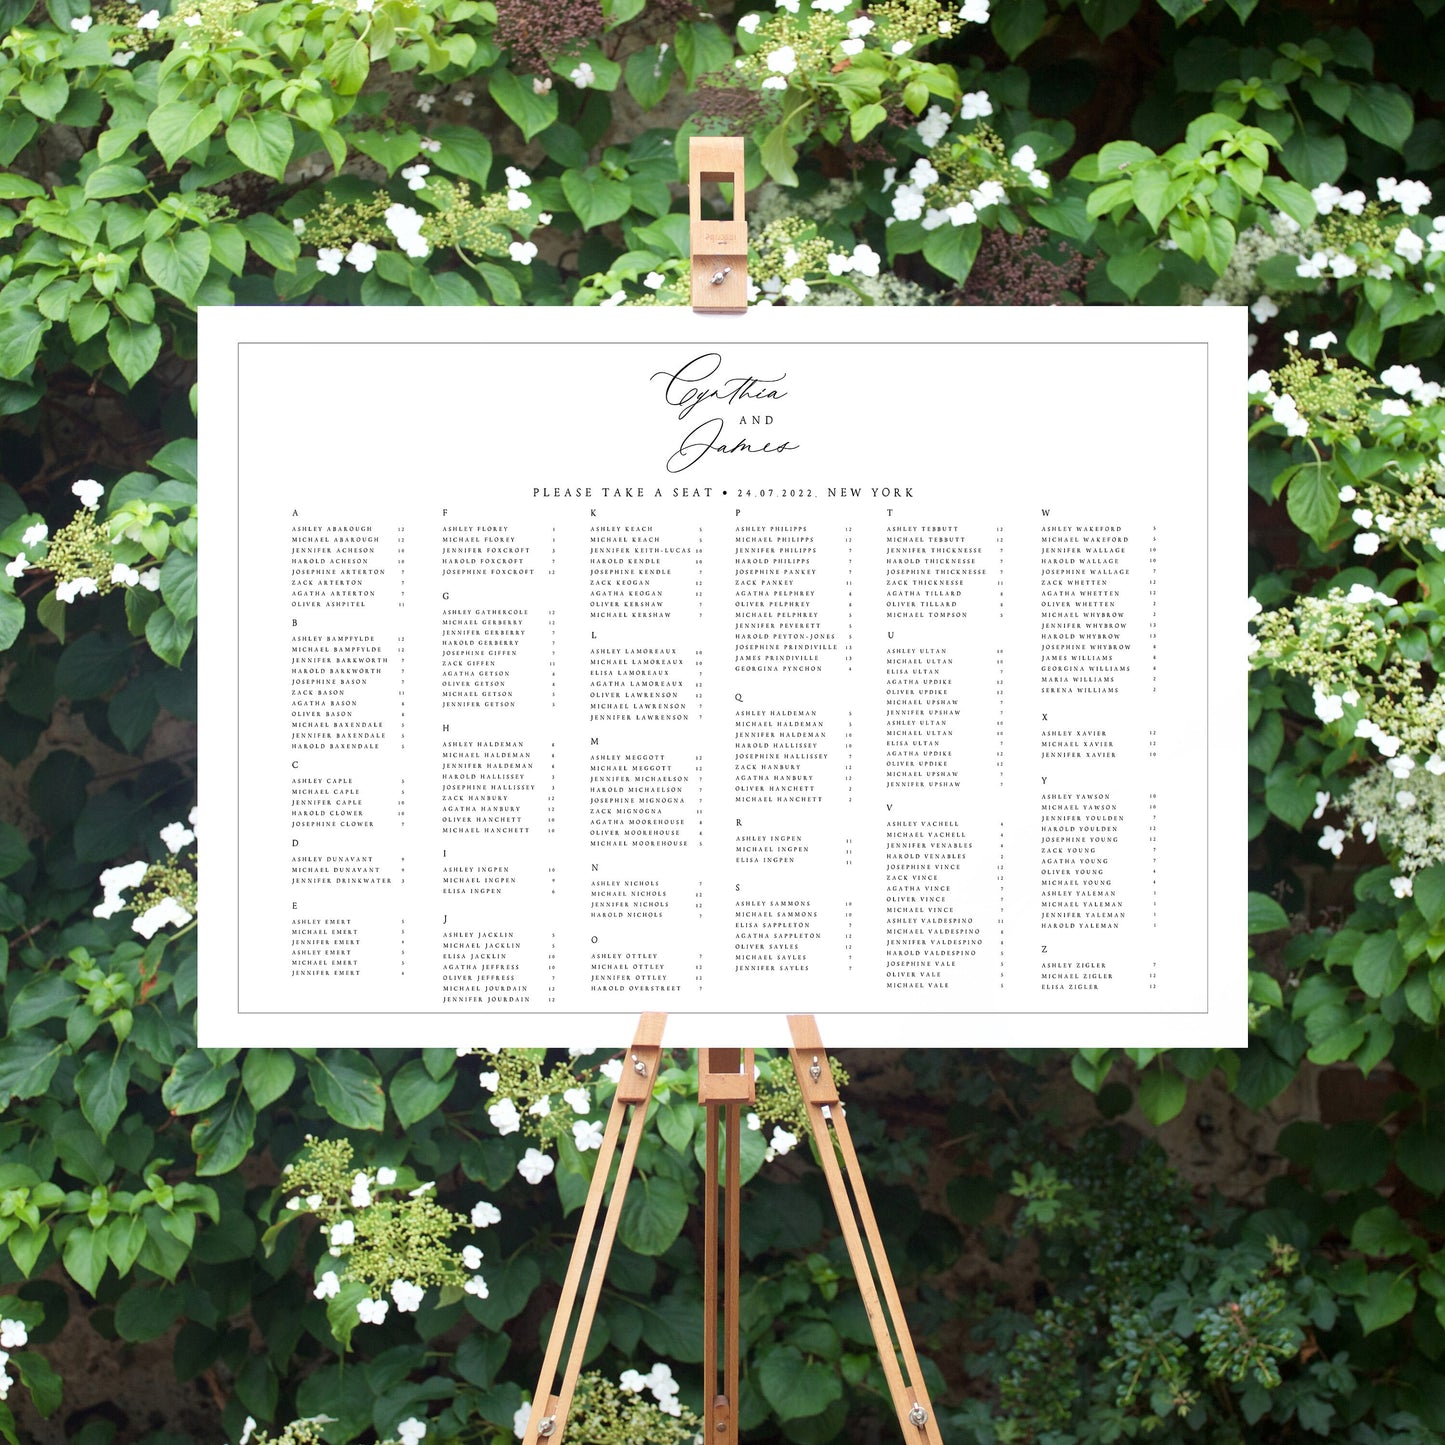 Cynthia
AND
James
PLEASE TAKE A SEAT • 24.07.2022. NEW YORK
A
ASHLEY ABAROUGH 12
MICHAEL ABAROUGH 12
JENNIFER ACHESON 10
HAROLD ACHESON 10
JOSEPHINE ARTERTON 7
ZACK ARTERTON 7
AGATHA ARTERTON 7
OLIVER ASHPITEL 11
B
ASHLEY BAMPFYLDE 12
MICHAEL BAMPFYLDE 12
JENNIFER BARKWORTH 7
HAROLD BARKWORTH 7
JOSEPHINE BASON 7
ZACK BASON 11
AGATHA BASON
OLIVER BASON
MICHAEL BAXENDALE 5
JENNIFER BAXENDALE 5
HAROLD BAXENDALE 5
C
ASHLEY CAPLE 5
MICHAEL CAPLE 5
JENNIFER CAPLE 10
HAROLD CLOWER 10
JOSEPHINE CLOWER 7
D
ASHLEY DUNAVANT 9
MICHAEL DUNAVANT 9
JENNIFER DRINKWATER 3
E
ASHLEY EMERT
MICHAEL EMERT
JENNIFER EMERT
ASHLEY EMERT
MICHAEL EMERT
JENNIFER EMERT
F
ASHLEY FLOREY 1
MICHAEL FLOREY 1
JENNIFER FOXCROFT
HAROLD FOXCROFT 7
JOSEPHINE FOXCROFT 12
G
ASHLEY GATHERCOLE 12
MICHAEL GERBERRY 12
JENNIFER GERBERRY 7
HAROLD GERBERRY 7
JOSEPHINE GIFFEN 7
ZACK GIFFEN 11
AGATHA GETSON
OLIVER GETSON
MICHAEL GETSON 5
JENNIFER GETSON 5
H
ASHLEY HALDEMAN
MICHAEL HALDEMAN
JENNIFER HALDEMAN
HAROLD HALLISSEY
JOSEPHINE HALLISSEY
ZACK HANBURY 12
AGATHA HANBURY 12
OLIVER HANCHETT 10
MICHAEL HANCHETT 10
I
ASHLEY INGPEN 10
MICHAEL INGPEN 9
ELISA INGPEN
J
ASHLEY JACKLIN 5
MICHAEL JACKLIN 5
ELISA JACKLIN 10
AGATHA JEFFRESS 10
OLIVER JEFFRESS 7
MICHAEL JOURDAIN 12
JENNIFER JOURDAIN 12
K
ASHLEY KEACH 5
MICHAEL KEACH 5
JENNIFER KEITH-LUCAS 10
HAROLD KENDLE 10
JOSEPHINE KENDLE 7
ZACK KEOGAN 12
AGATHA KEOGAN 12
OLIVER KERSHAW 7
MICHAEL KERSHAW 7
L
ASHLEY LAMOREAUX 10
MICHAEL LAMOREAUX 10
ELISA LAMOREAUX 7
AGATHA LAMOREAUX 12
OLIVER LAWRENSON 12
MICHAEL LAWRENSON 7
JENNIFER LAWRENSON 7
M
ASHLEY MEGGOTT 12
MICHAEL MEGGOTT 12
JENNIFER MICHAELSON 7
HAROLD MICHAELSON 7
JOSEPHINE MIGNOGNA 7
ZACK MIGNOGNA 11
AGATHA MOOREHOUSE
OLIVER MOOREHOUSE
MICHAEL MOOREHOUSE 5
N
ASHLEY NICHOLS 7
MICHAEL NICHOLS 12
JENNIFER NICHOLS 12
HAROLD NICHOLS 7
O
ASHLEY OTTLEY 7
MICHAEL OTTLEY 12
JENNIFER OTTLEY 12
HAROLD OVERSTREET 7
P
ASHLEY PHILIPPS 12
MICHAEL PHILIPPS 12
JENNIFER PHILIPPS 7
HAROLD PHILIPPS 7
JOSEPHINE PANKEY 7
ZACK PANKEY 11
AGATHA PELPHREY
OLIVER PELPHREY
MICHAEL PELPHREY 5
JENNIFER PEVERETT 5
HAROLD PEYTON-JONES 5
JOSEPHINE PRINDIVILLE 13
JAMES PRINDIVILLE 13
GEORGINA PYNCHON
Q
ASHLEY HALDEMAN 5
MICHAEL HALDEMAN 5
JENNIFER HALDEMAN 10
HAROLD HALLISSEY 10
JOSEPHINE HALLISSEY 7
ZACK HANBURY 12
AGATHA HANBURY 12
OLIVER HANCHETT 2
MICHAEL HANCHETT 2
R
ASHLEY INGPEN 11
MICHAEL INGPEN 11
ELISA INGPEN 11
S
ASHLEY SAMMONS 10
MICHAEL SAMMONS 10
ELISA SAPPLETON 7
AGATHA SAPPLETON 12
OLIVER SAYLES 12
MICHAEL SAYLES 7
JENNIFER SAYLES 7
T
ASHLEY TEBBUTT 12
MICHAEL TEBBUTT 12
JENNIFER THICKNESSE 7
HAROLD THICKNESSE 7
JOSEPHINE THICKNESSE 7
ZACK THICKNESSE 11
AGATHA TILLARD
OLIVER TILLARD
MICHAEL TOMPSON 5
U
ASHLEY ULTAN 10
MICHAEL ULTAN 10
ELISA ULTAN 7
AGATHA UPDIKE 12
OLIVER UPDIKE 12
MICHAEL UPSHAW 7
JENNIFER UPSHAW 7
ASHLEY ULTAN 10
MICHAEL ULTAN 10
ELISA ULTAN 7
AGATHA UPDIKE 12
OLIVER UPDIKE 12
MICHAEL UPSHAW 7
JENNIFER UPSHAW 7
V
ASHLEY VACHELL 4
MICHAEL VACHELL 4
JENNIFER VENABLES 4
HAROLD VENABLES 2
JOSEPHINE VINCE 12
ZACK VINCE 12
AGATHA VINCE 7
OLIVER VINCE 7
MICHAEL VINCE 7
ASHLEY VALDESPINO 11
MICHAEL VALDESPINO
JENNIFER VALDESPINO
HAROLD VALDESPINO 5
JOSEPHINE VALE 5
OLIVER VALE 5
MICHAEL VALE 5
W
ASHLEY WAKEFORD 5
MICHAEL WAKEFORD 5
JENNIFER WALLAGE 10
HAROLD WALLAGE 10
JOSEPHINE WALLAGE 7
ZACK WHETTEN 12
AGATHA WHETTEN 12
OLIVER WHETTEN 2
MICHAEL WHYBROW 2
JENNIFER WHYBROW 13
HAROLD WHYBROW 13
JOSEPHINE WHYBROW
JAMES WILLIAMS
GEORGINA WILLIAMS
MARIA WILLIAMS 2
SERENA WILLIAMS 2
X
ASHLEY XAVIER 12
MICHAEL XAVIER 12
JENNIFER XAVIER 10
Y
ASHLEY YAWSON 10
MICHAEL YAWSON 10
JENNIFER YOULDEN 7
HAROLD YOULDEN 12
JOSEPHINE YOUNG 12
ZACK YOUNG 7
AGATHA YOUNG 7
OLIVER YOUNG 4
MICHAEL YOUNG 4
ASHLEY YALEMAN 1
MICHAEL YALEMAN 1
JENNIFER YALEMAN 1
HAROLD YALEMAN 1
Z
ASHLEY ZIGLER 7
MICHAEL ZIGLER 12
ELISA ZIGLER 12